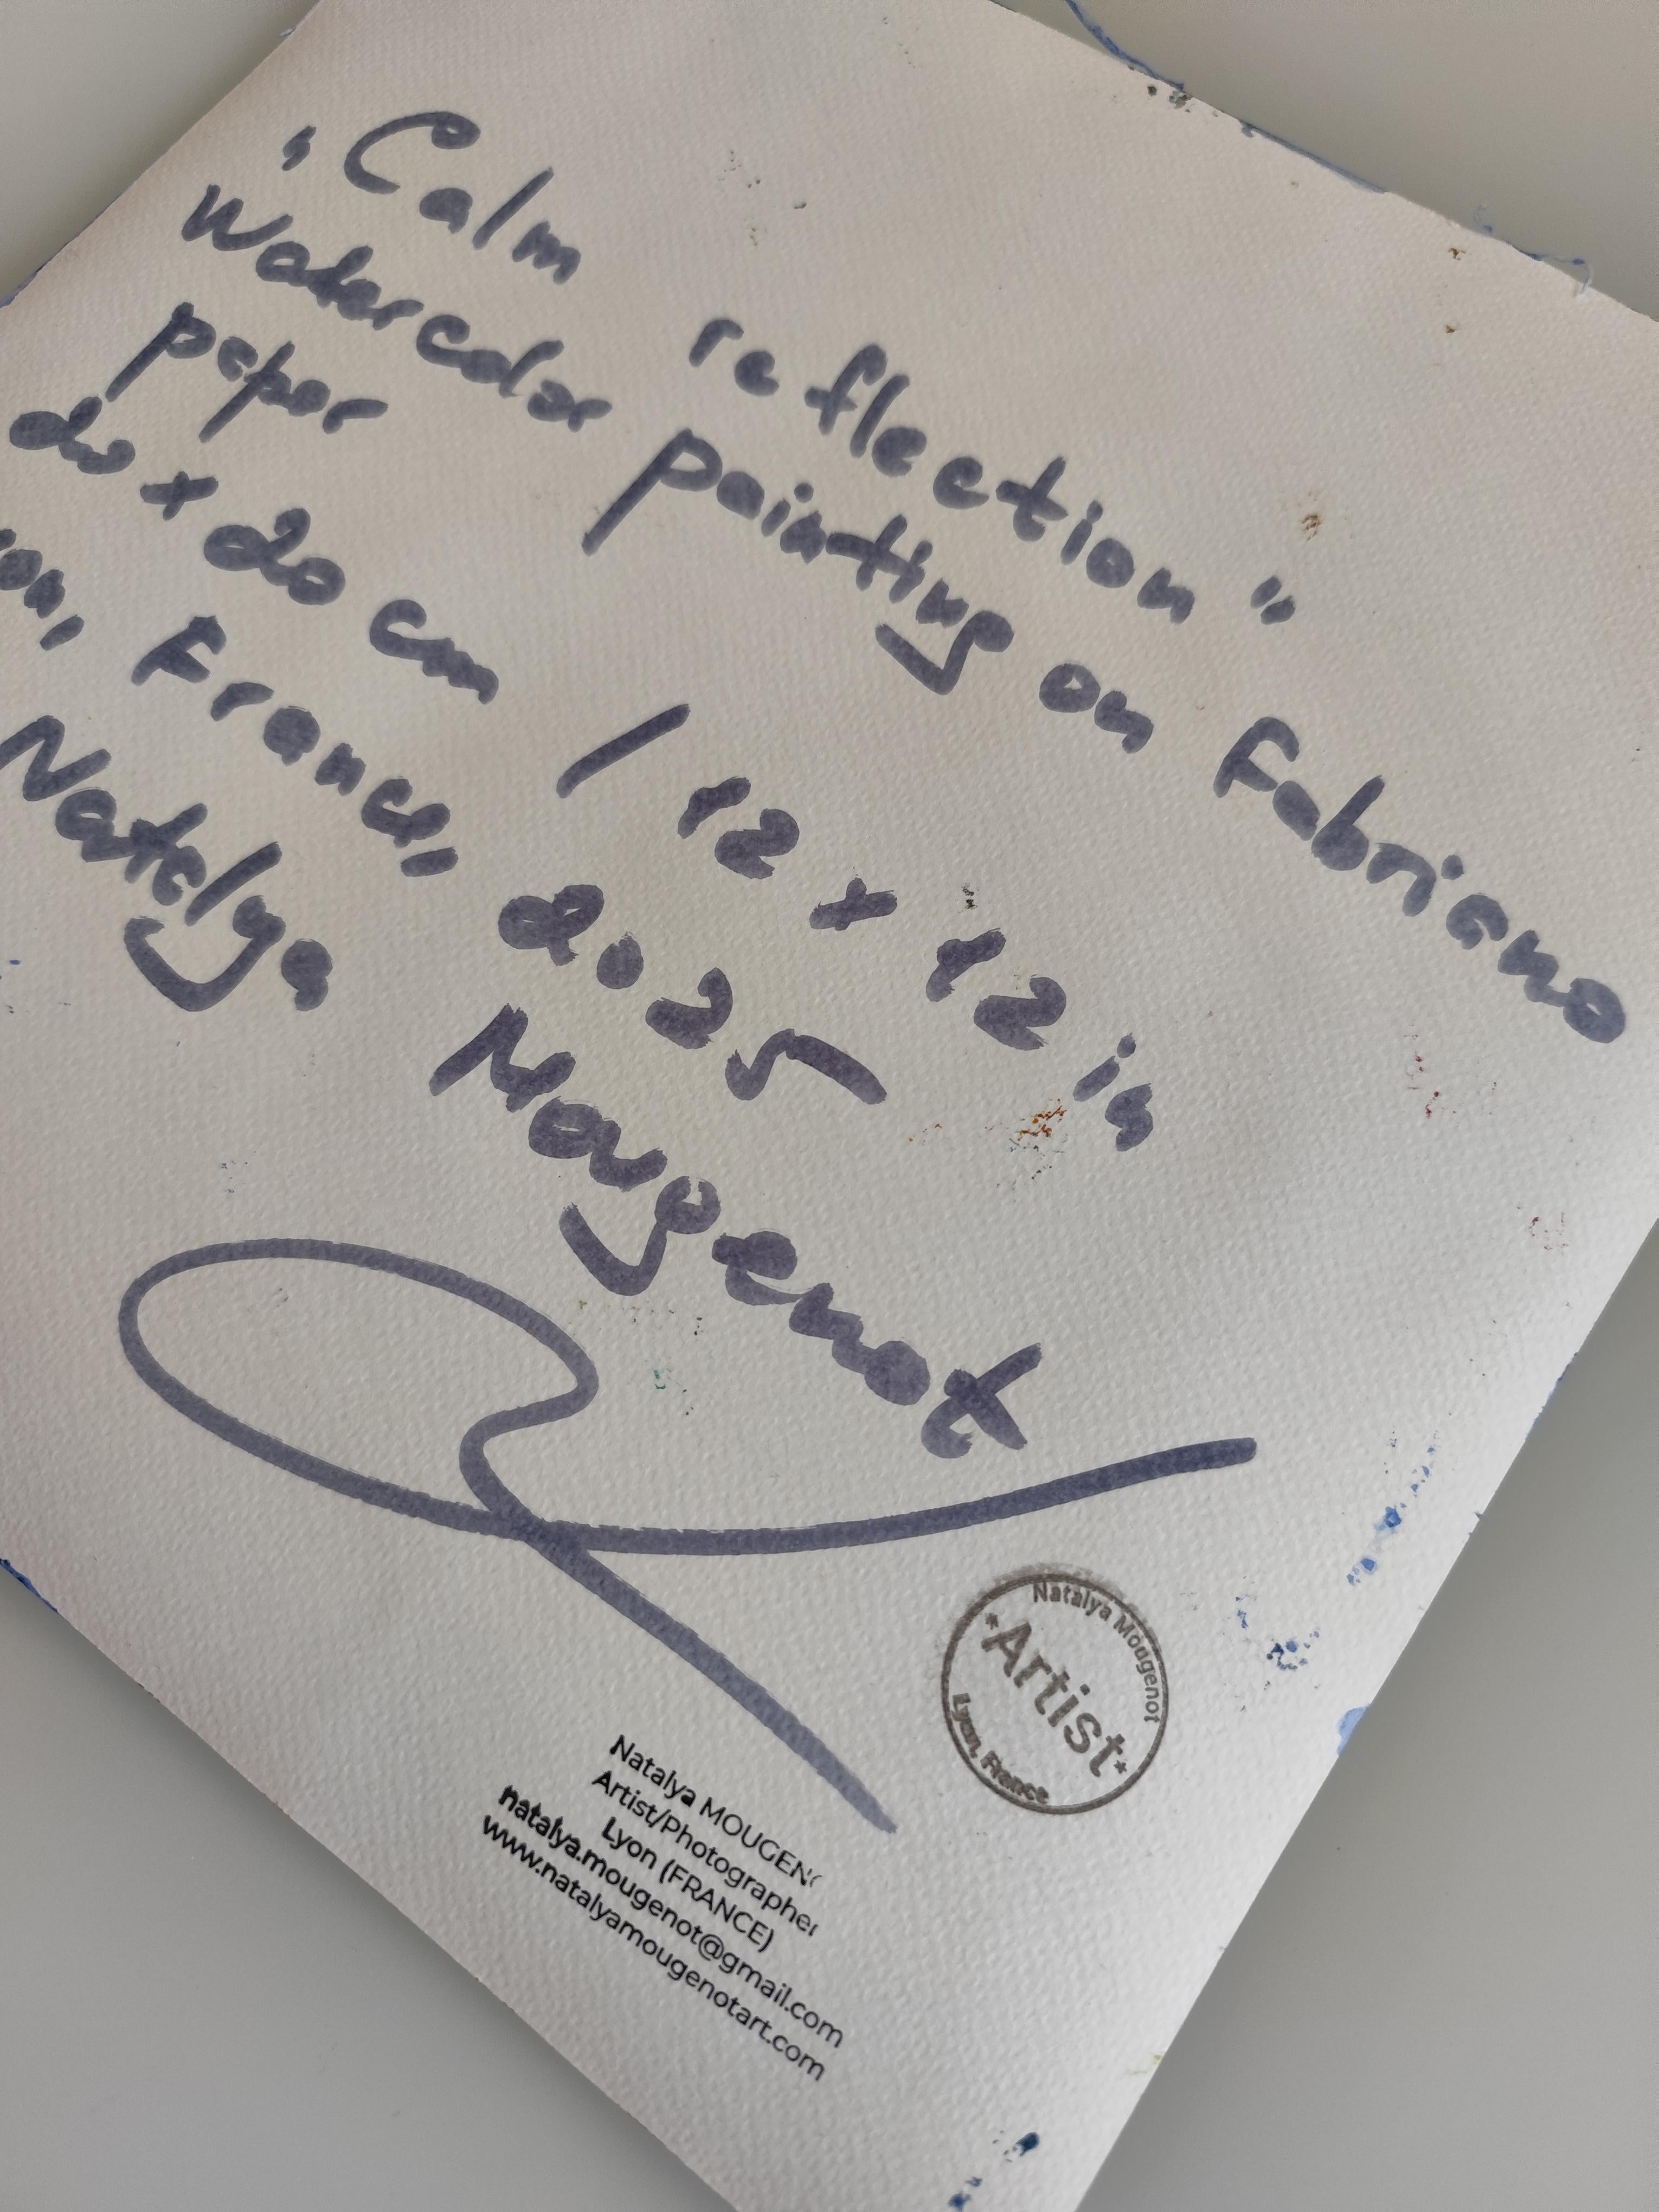 "Calm reflection"
Watercolor painting on Fabriano
paper
20 x 20 cm / 12 x 12 in
on, France, 2025
Natalya Mougenot
Natalya Mougenot
*Artist*
Lyon, France
Natalya MOUGENO
Artist/Photographer
Lyon (FRANCE)
natalya.mougenot@gmail.com
www.natalyamougenotart.com